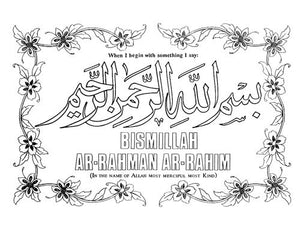 When I begin with something I say:
بِسْمِ اللهِ الرَّحْمٰنِ الرَّحِيمِ
BISMILLAH
AR-RAHMAN AR-RAHIM
(In the name of Allah most merciful most Kind)